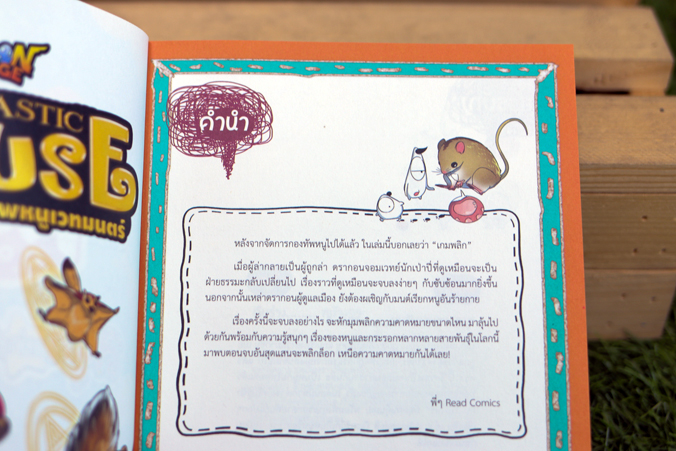 ASTIC
USE
พหนูเวทมนตร์
คำนำ
หลังจากจัดการกองทัพหนูไปได้แล้ว ในเล่มนี้บอกเลยว่า “เกมพลิก”
เมื่อผู้ล่ากลายเป็นผู้ถูกล่า ดรากอนจอมเวทย์นักเป่าปี่ที่ดูเหมือนจะเป็น
ฝ่ายธรรมะกลับเปลี่ยนไป เรื่องราวที่ดูเหมือนจะจบลงง่ายๆ กับซับซ้อนมากยิ่งขึ้น
นอกจากนั้นเหล่าดรากอนผู้ดูแลเมือง ยังต้องผเชิญกับมนต์เรียกหนูอันร้ายกาย
เรื่องครั้งนี้จะจบลงอย่างไร จะหักมุมพลิกความคาดหมายขนาดไหน มาลุ้นไป
ด้วยกันพร้อมกับความรู้สนุกๆ เรื่องของหนูและกระรอกหลากหลายสายพันธุ์ในโลกนี้
มาพบตอนจบอันสุดแสนจะพลิกล็อก เหนือความคาดหมายกันได้เลย!
พี่ๆ Read Comics